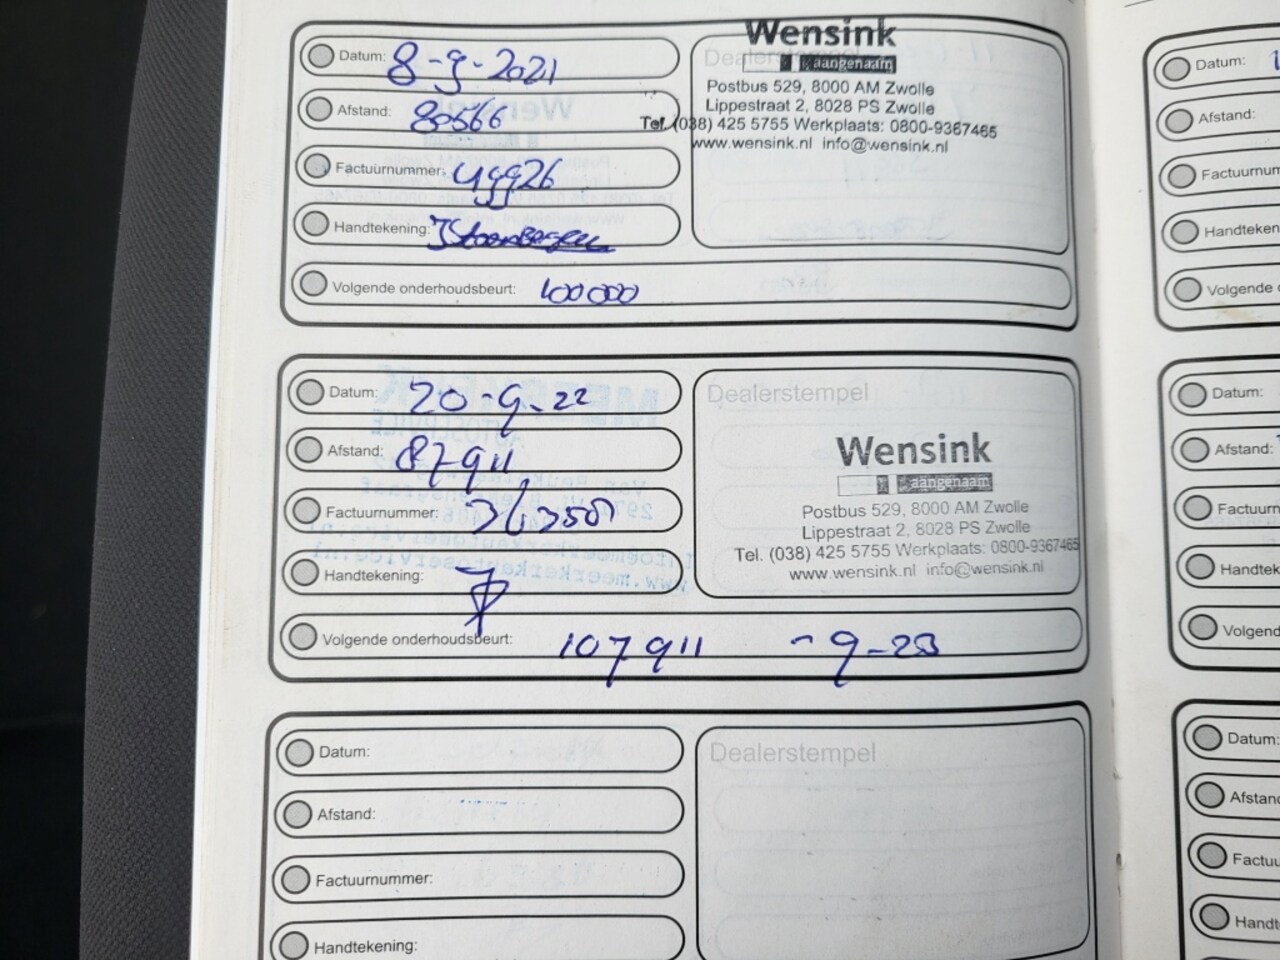 Datum: 8-9-2021
Afstand: 80566
Factuurnummer: 49926
Handtekening:
Volgende onderhoudsbeurt: 100000
Dealerstempel
Wensink
aangenaam
Postbus 529, 8000 AM Zwolle
Lippestraat 2, 8028 PS Zwolle
Tel. (038) 425 5755 Werkplaats: 0800-9367465
www.wensink.nl info@wensink.nl
Datum: 20-9-22
Afstand: 87911
Factuurnummer:
Handtekening:
Volgende onderhoudsbeurt: 107911 -9-23
Dealerstempel
Wensink
aangenaam
Postbus 529, 8000 AM Zwolle
Lippestraat 2, 8028 PS Zwolle
Tel. (038) 425 5755 Werkplaats: 0800-9367465
www.wensink.nl info@wensink.nl
Datum:
Afstand:
Factuurnummer:
Handtekening:
Dealerstempel
Datum:
Afstand:
Factuurnum
Handteken
Volgende
Datum:
Afstand:
Factuurn
Handtek
Volgend
Datum:
Afstan
Factuu
Handt